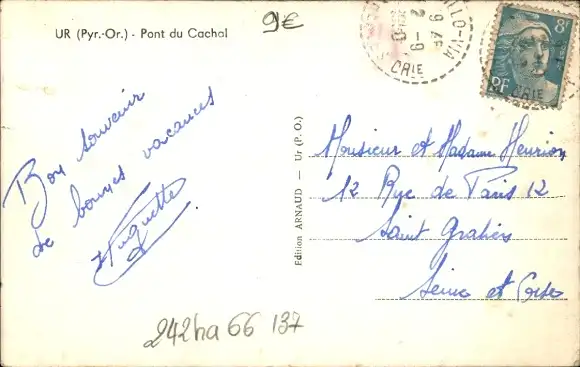 UR (Pyr.-Or.) - Pont du Cachol
9€
8F
RF
Bon souvenir
de bonnes vacances
Huguette
Edition ARNAUD — Ur (P. O.)
Monsieur et Madame Heurion
12 Rue de Paris 12
Saint Gratien
Seine et Oise
242ha 66 137